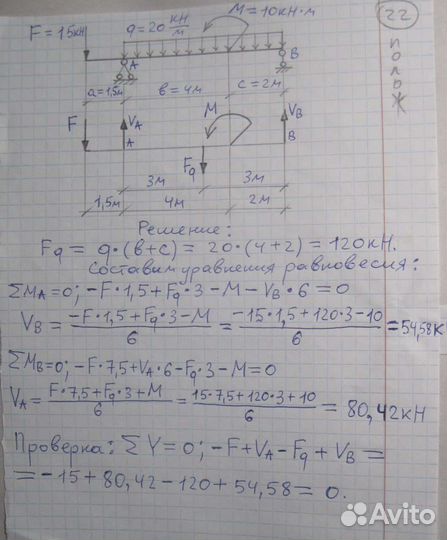 F=15кН q=20 кН/м M=10кН·м 22
ПОЛЬ
A B
a=1,5м в=4м c=2м
F VA M VB
A B
Fq
3м 3м
1,5м 4м 2м
Решение:
Fq = q·(в+с) = 20·(4+2) = 120кН.
Составим уравнения равновесия:
ΣMA=0; -F·1,5+Fq·3-M-VB·6=0
VB = (-F·1,5+Fq·3-M)/6 = (-15·1,5+120·3-10)/6 = 54,58к
ΣMB=0; -F·7,5+VA·6-Fq·3-M=0
VA = (F·7,5+Fq·3+M)/6 = (15·7,5+120·3+10)/6 = 80,42кН
Проверка: ΣY=0; -F+VA-Fq+VB=
=-15+80,42-120+54,58=0.
Avito